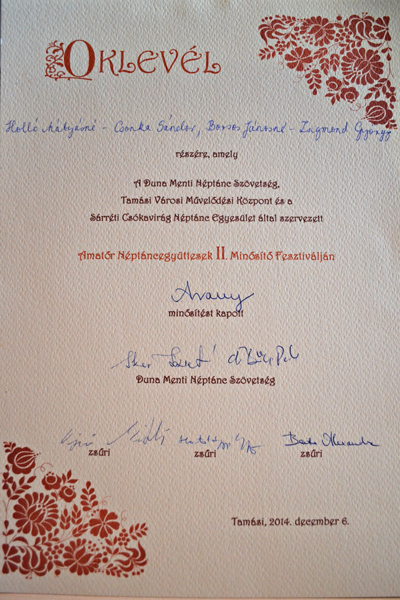 OKLEVÉL
Holló Mátyásné - Csonka Sándor, Borsos Jánosné - Zsigmond György
részére, amely
A Duna Menti Néptánc Szövetség,
Tamási Városi Művelődési Központ és a
Sárréti Csókavirág Néptánc Egyesület által szervezett
Amatőr Néptáncegyüttesek II. Minősítő Fesztiválján
Arany
minősítést kapott
Duna Menti Néptánc Szövetség
zsűri zsűri zsűri
Tamási, 2014. december 6.